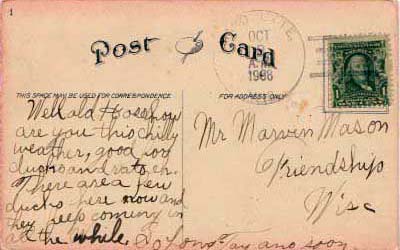 1
Post Card
THIS SPACE MAY BE USED FOR CORRESPONDENCE
FOR ADDRESS ONLY
OCT
A.M.
1908
Well old Hoss how
are you this chilly
weather, good for
ducks and rats eh.
There are a few
ducks here now and
they keep coming in
all the while. So Long Tay ans soon.
Mr Marvin Mason
Friendship
Wisc